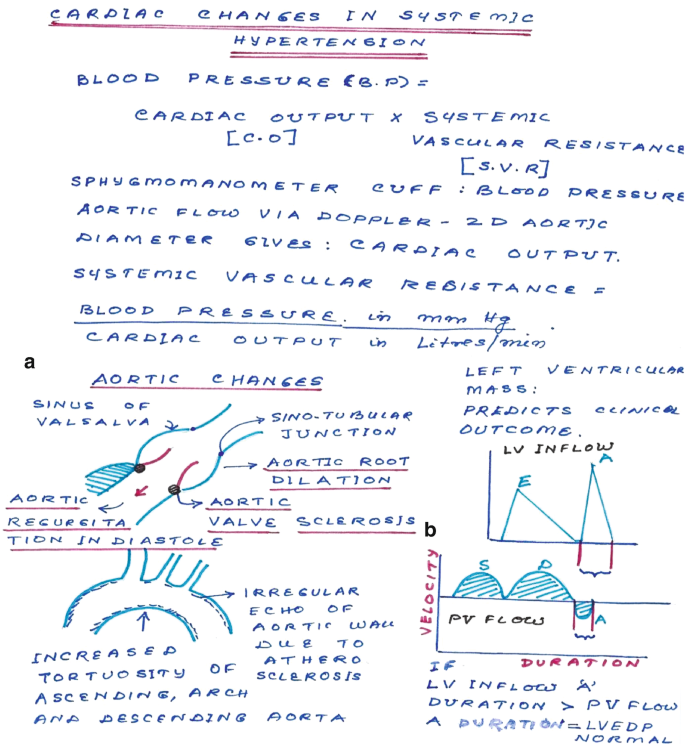 CARDIAC CHANGES IN SYSTEMIC
HYPERTENSION
BLOOD PRESSURE (B.P) =
CARDIAC OUTPUT X SYSTEMIC
[C.O] VASCULAR RESISTANCE
[S.V.R]
SPHYGMOMANOMETER CUFF : BLOOD PRESSURE
AORTIC FLOW VIA DOPPLER - 2D AORTIC
DIAMETER GIVES : CARDIAC OUTPUT.
SYSTEMIC VASCULAR RESISTANCE =
BLOOD PRESSURE. in mm Hg
CARDIAC OUTPUT in Litres/min
a
AORTIC CHANGES
SINUS OF
VALSALVA
SINO-TUBULAR
JUNCTION
AORTIC ROOT
DILATION
AORTIC
REGURGITA
TION IN DIASTOLE
AORTIC
VALVE SCLEROSIS
IRREGULAR
ECHO OF
AORTIC WALL
DUE TO
ATHERO
SCLEROSIS
INCREASED
TORTUOSITY OF
ASCENDING, ARCH
AND DESCENDING AORTA
LEFT VENTRICULAR
MASS:
PREDICTS CLINICAL
OUTCOME.
LV INFLOW
E
A
b
VELOCITY
S
D
PV FLOW
A
DURATION
IF
LV INFLOW 'A'
DURATION > PV FLOW
A DURATION = LVEDP
NORMAL